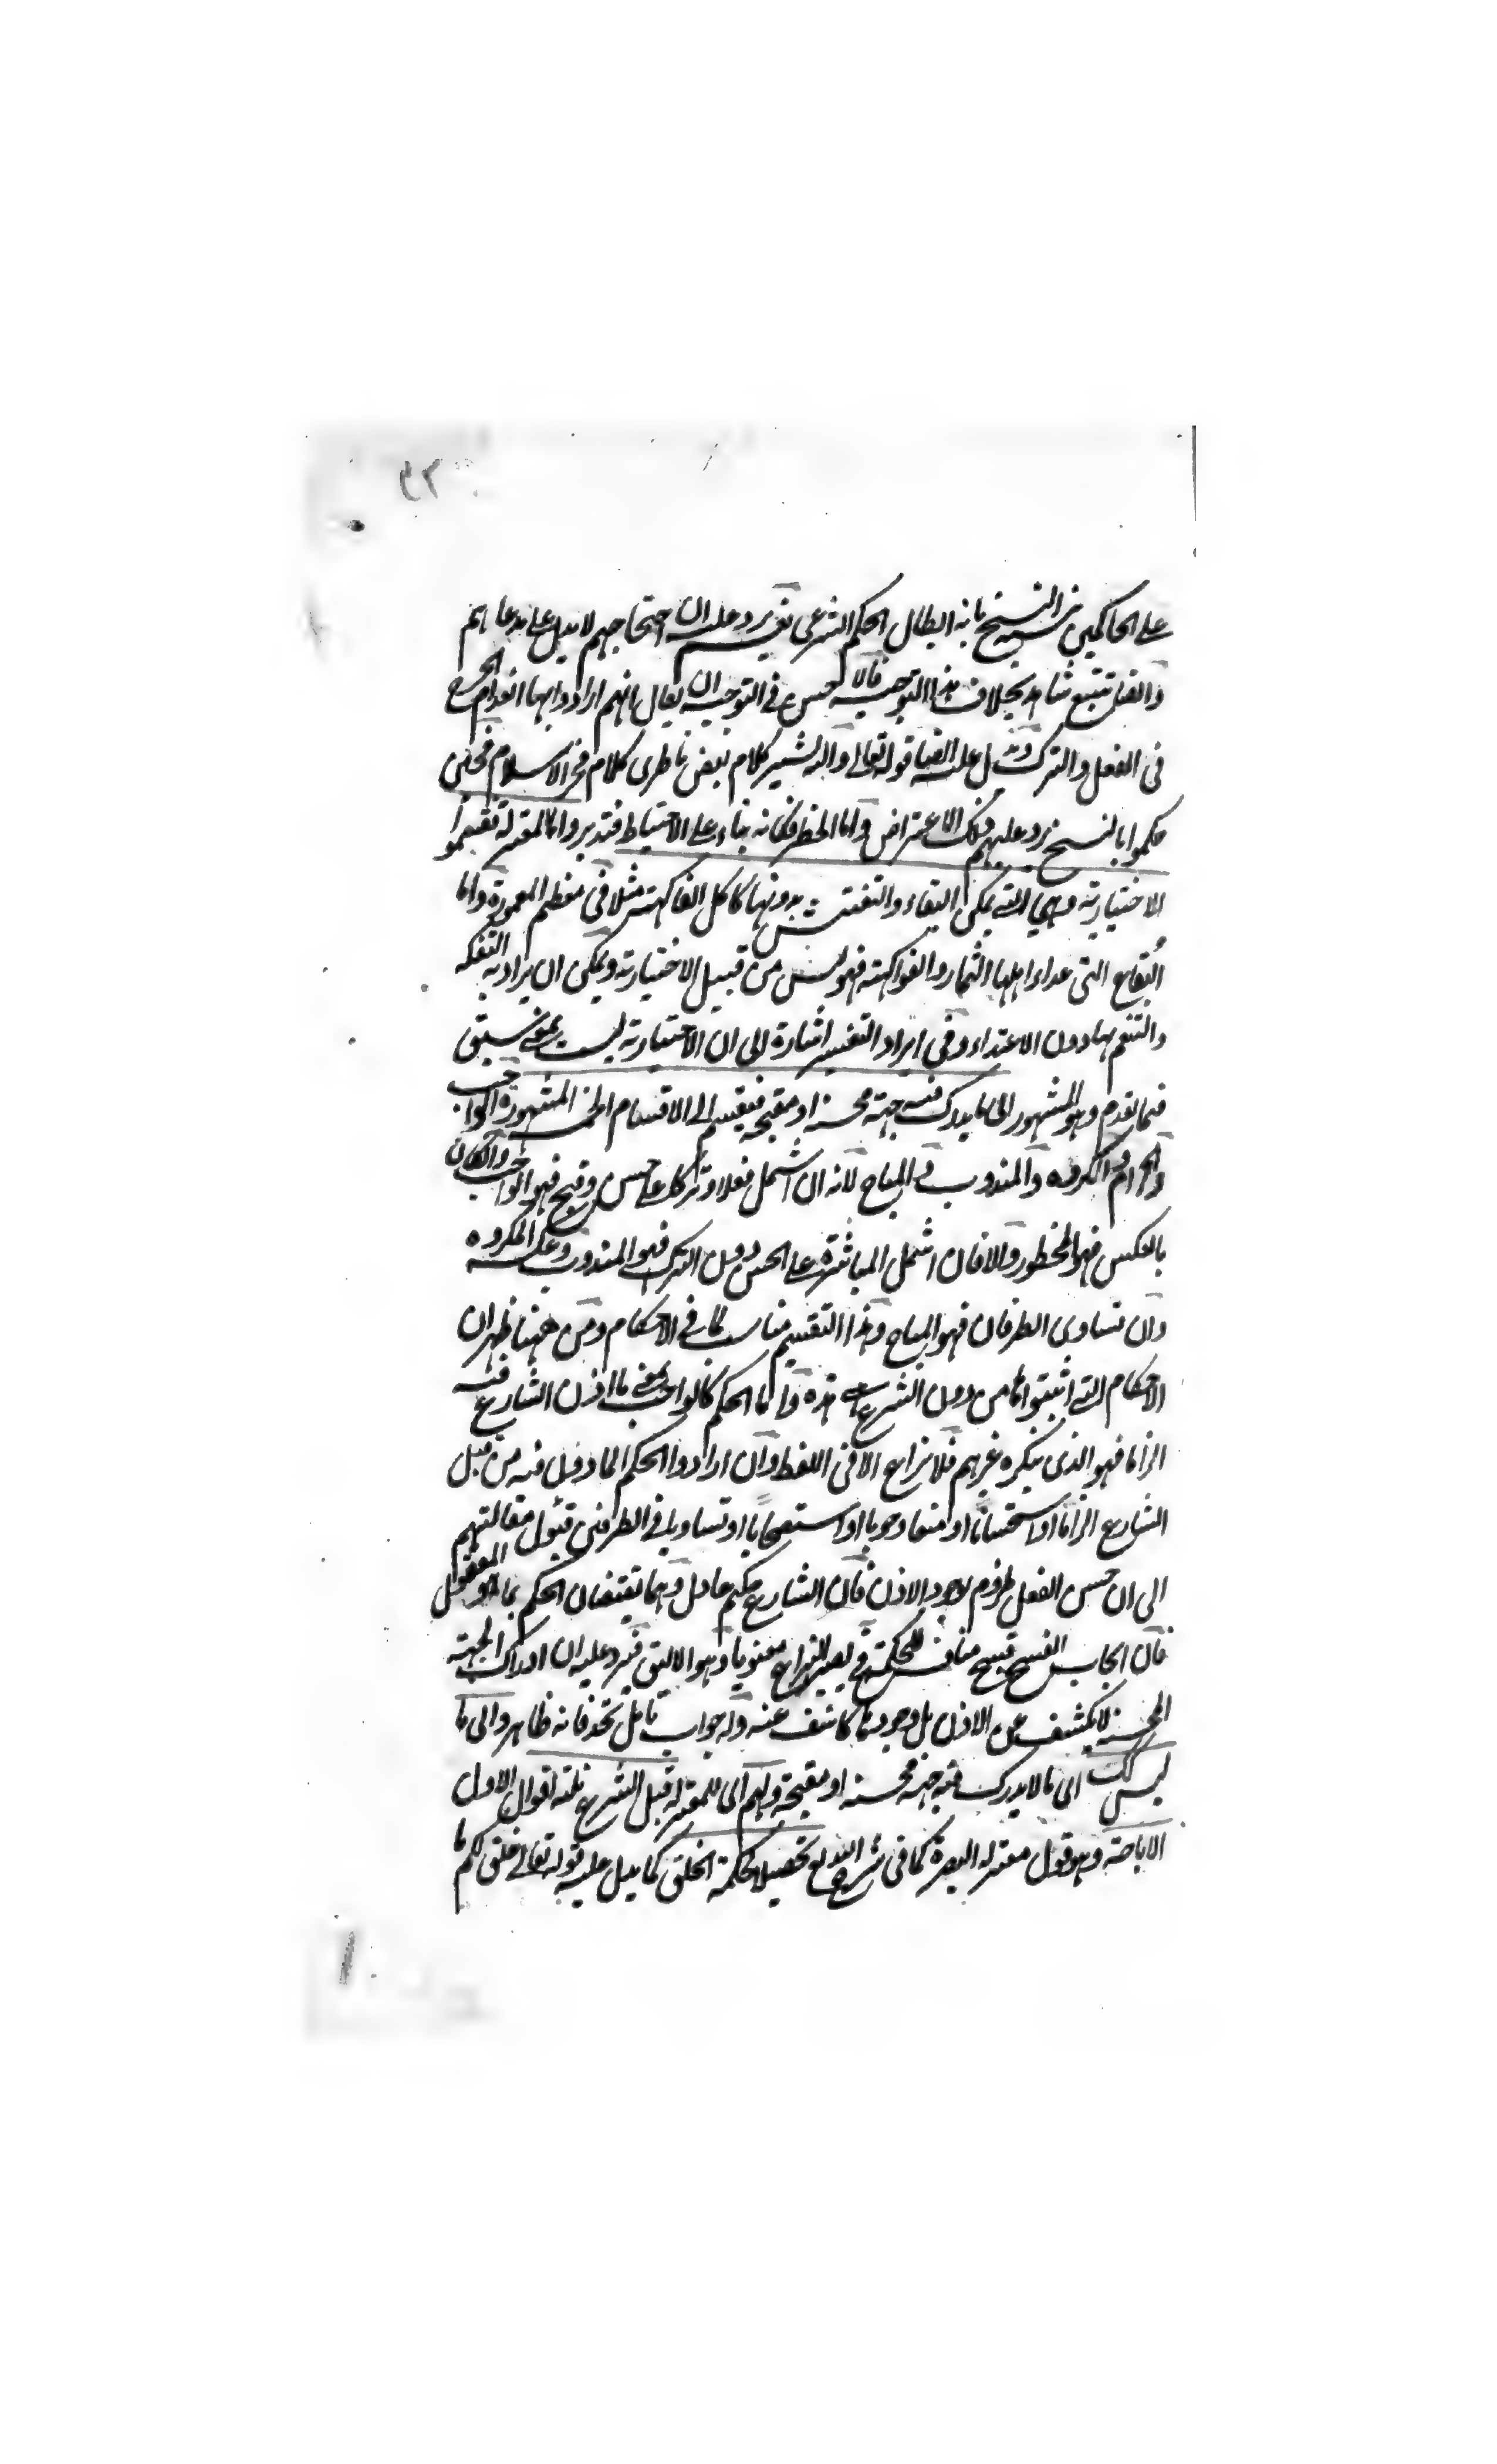 ٤٢
على الحاكمين النسخ بانه ابطال الحكم الشرعي نعم يرد عليه ان احتجاجهم لا يدل على مدعاهم
والعقل تتبع شاهد بخلاف هذا التوجيه فالاحسن في التوجيه ان يقال انهم ارادوا بها انعدام الحرج
في الفعل والترك وقد دل عليه ايضا قوله تعالى واليه يشير كلام بعض ناظرى كلام فخر الاسلام فحين
حكموا بالنسخ يرد عليهم ذلك الاعتراض واما الحظر فكانه بناء على الاحتياط فتدبر واما المعتزلة فقسموا
الاختيارية وهي التي يمكن البقاء والتعيش بدونها كاكل الفاكهة مثلا في معظم المعمورة واما
البقاع التي غذاء اهلها الثمار والفواكهة فهو ليس من قبيل الاختيارية ويمكن ان يراد به التفكه
والتنعم بها دون الاغتذاء وفي ايراد التفسير اشارة الى ان الاختيارية ليست بمعنى سبق
فيما تقدم وهو المشهور الى ما يدرك فيه جهة محسنة او مقبحة فينقسم الى الاقسام الخمسة المشهورة الواجب
والحرام والمكروه والمندوب والمباح لانه ان اشتمل فعلا وتركا على حسن وقبح فهو الواجب وان كان
بالعكس فهو المحظور والا فان اشتمل المباشرة على الحسن دون الترك فهو المندوب وعكسه المكروه
وان تساوى الطرفان فهو المباح وهذا التقسيم مناسب لما في الاحكام ومن ههنا ظهر ان
الاحكام التي اثبتوها من دون الشرع هي هذه واما الحكم كالواجب بمعنى ما اذن الشارع فيه
الزاما فهو الذي ينكره غيرهم فلا نزاع الا في اللفظ وان ارادوا الحكم المأذون فيه من قبل
الشارع الزاما او استحسانا او منعا وجوبا او استصحابا او تساويا في الطرفين فيئول مقالتهم
الى ان حسن الفعل ملزوم لوجود الاذن فان الشارع حكيم عادل وهما يقتضيان الحكم بما هو المعقول
فان ايجاب القبيح قبيح مناف للحكمة فح يصير النزاع معنويا وهو الاليق فيرد عليه ان ادراك الجهة
المحسنة لا يكشف عن الاذن بل وجودها كاشف عنه وله جواب تأمل تجد فانه ظاهر والى ما
ليس كذلك اى ما لا يدرك فيه جهة محسنة او مقبحة ولهم اى للمعتزلة قبل الشرع ثلثة اقوال الاول
الاباحة وهو قول معتزلة البصرة كما في شرح البديع تحصيلا لحكمة الخلق كما يدل عليه قوله تعالى خلق لكم ما